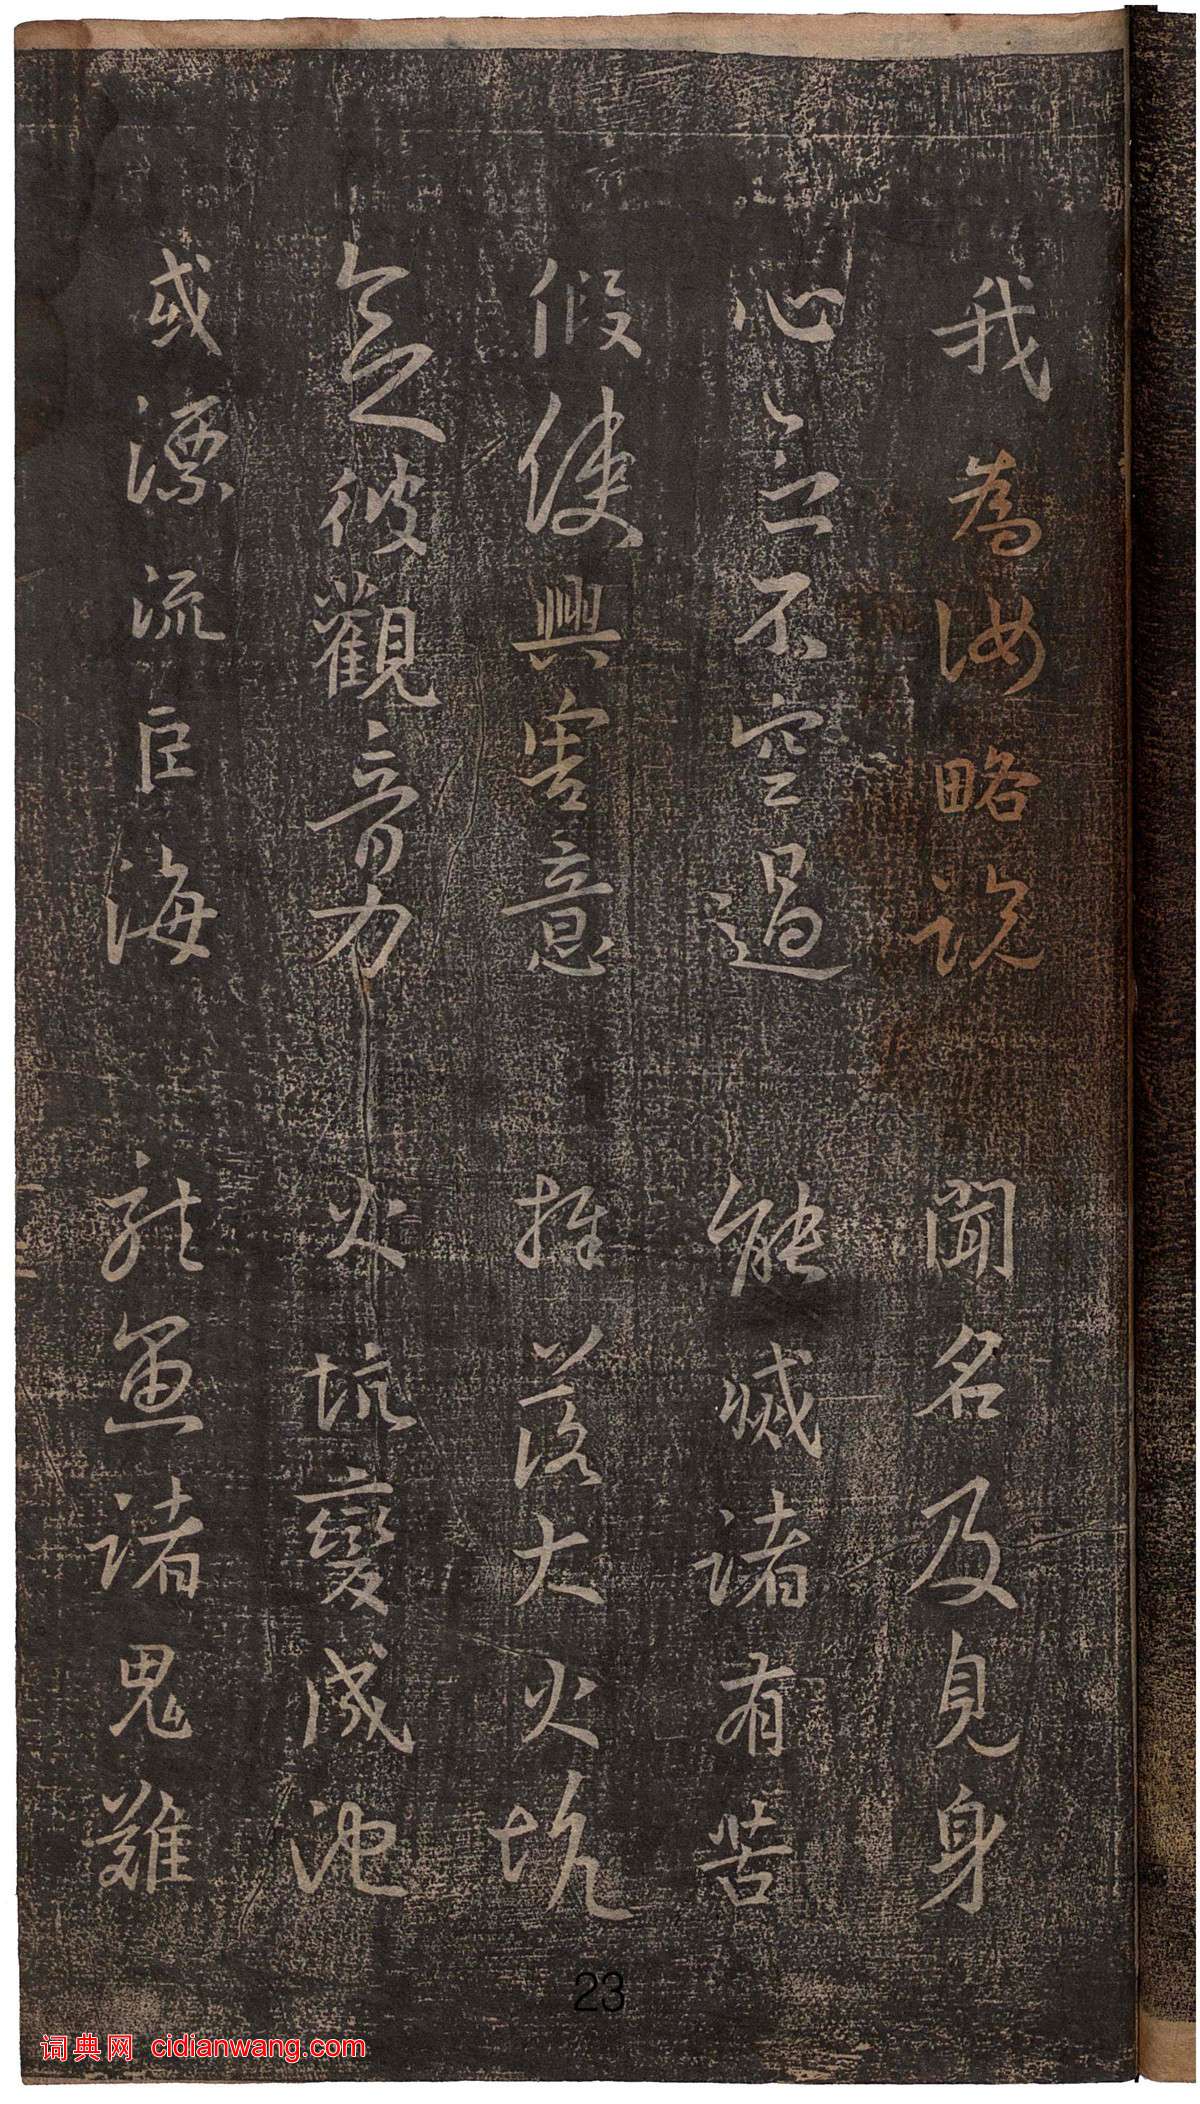 我為汝略說 聞名及見身
心念不空過 能滅諸有苦
假使興害意 推落大火坑
念彼觀音力 火坑變成池
或漂流巨海 龍魚諸鬼難
23
词典网 cidianwang.com